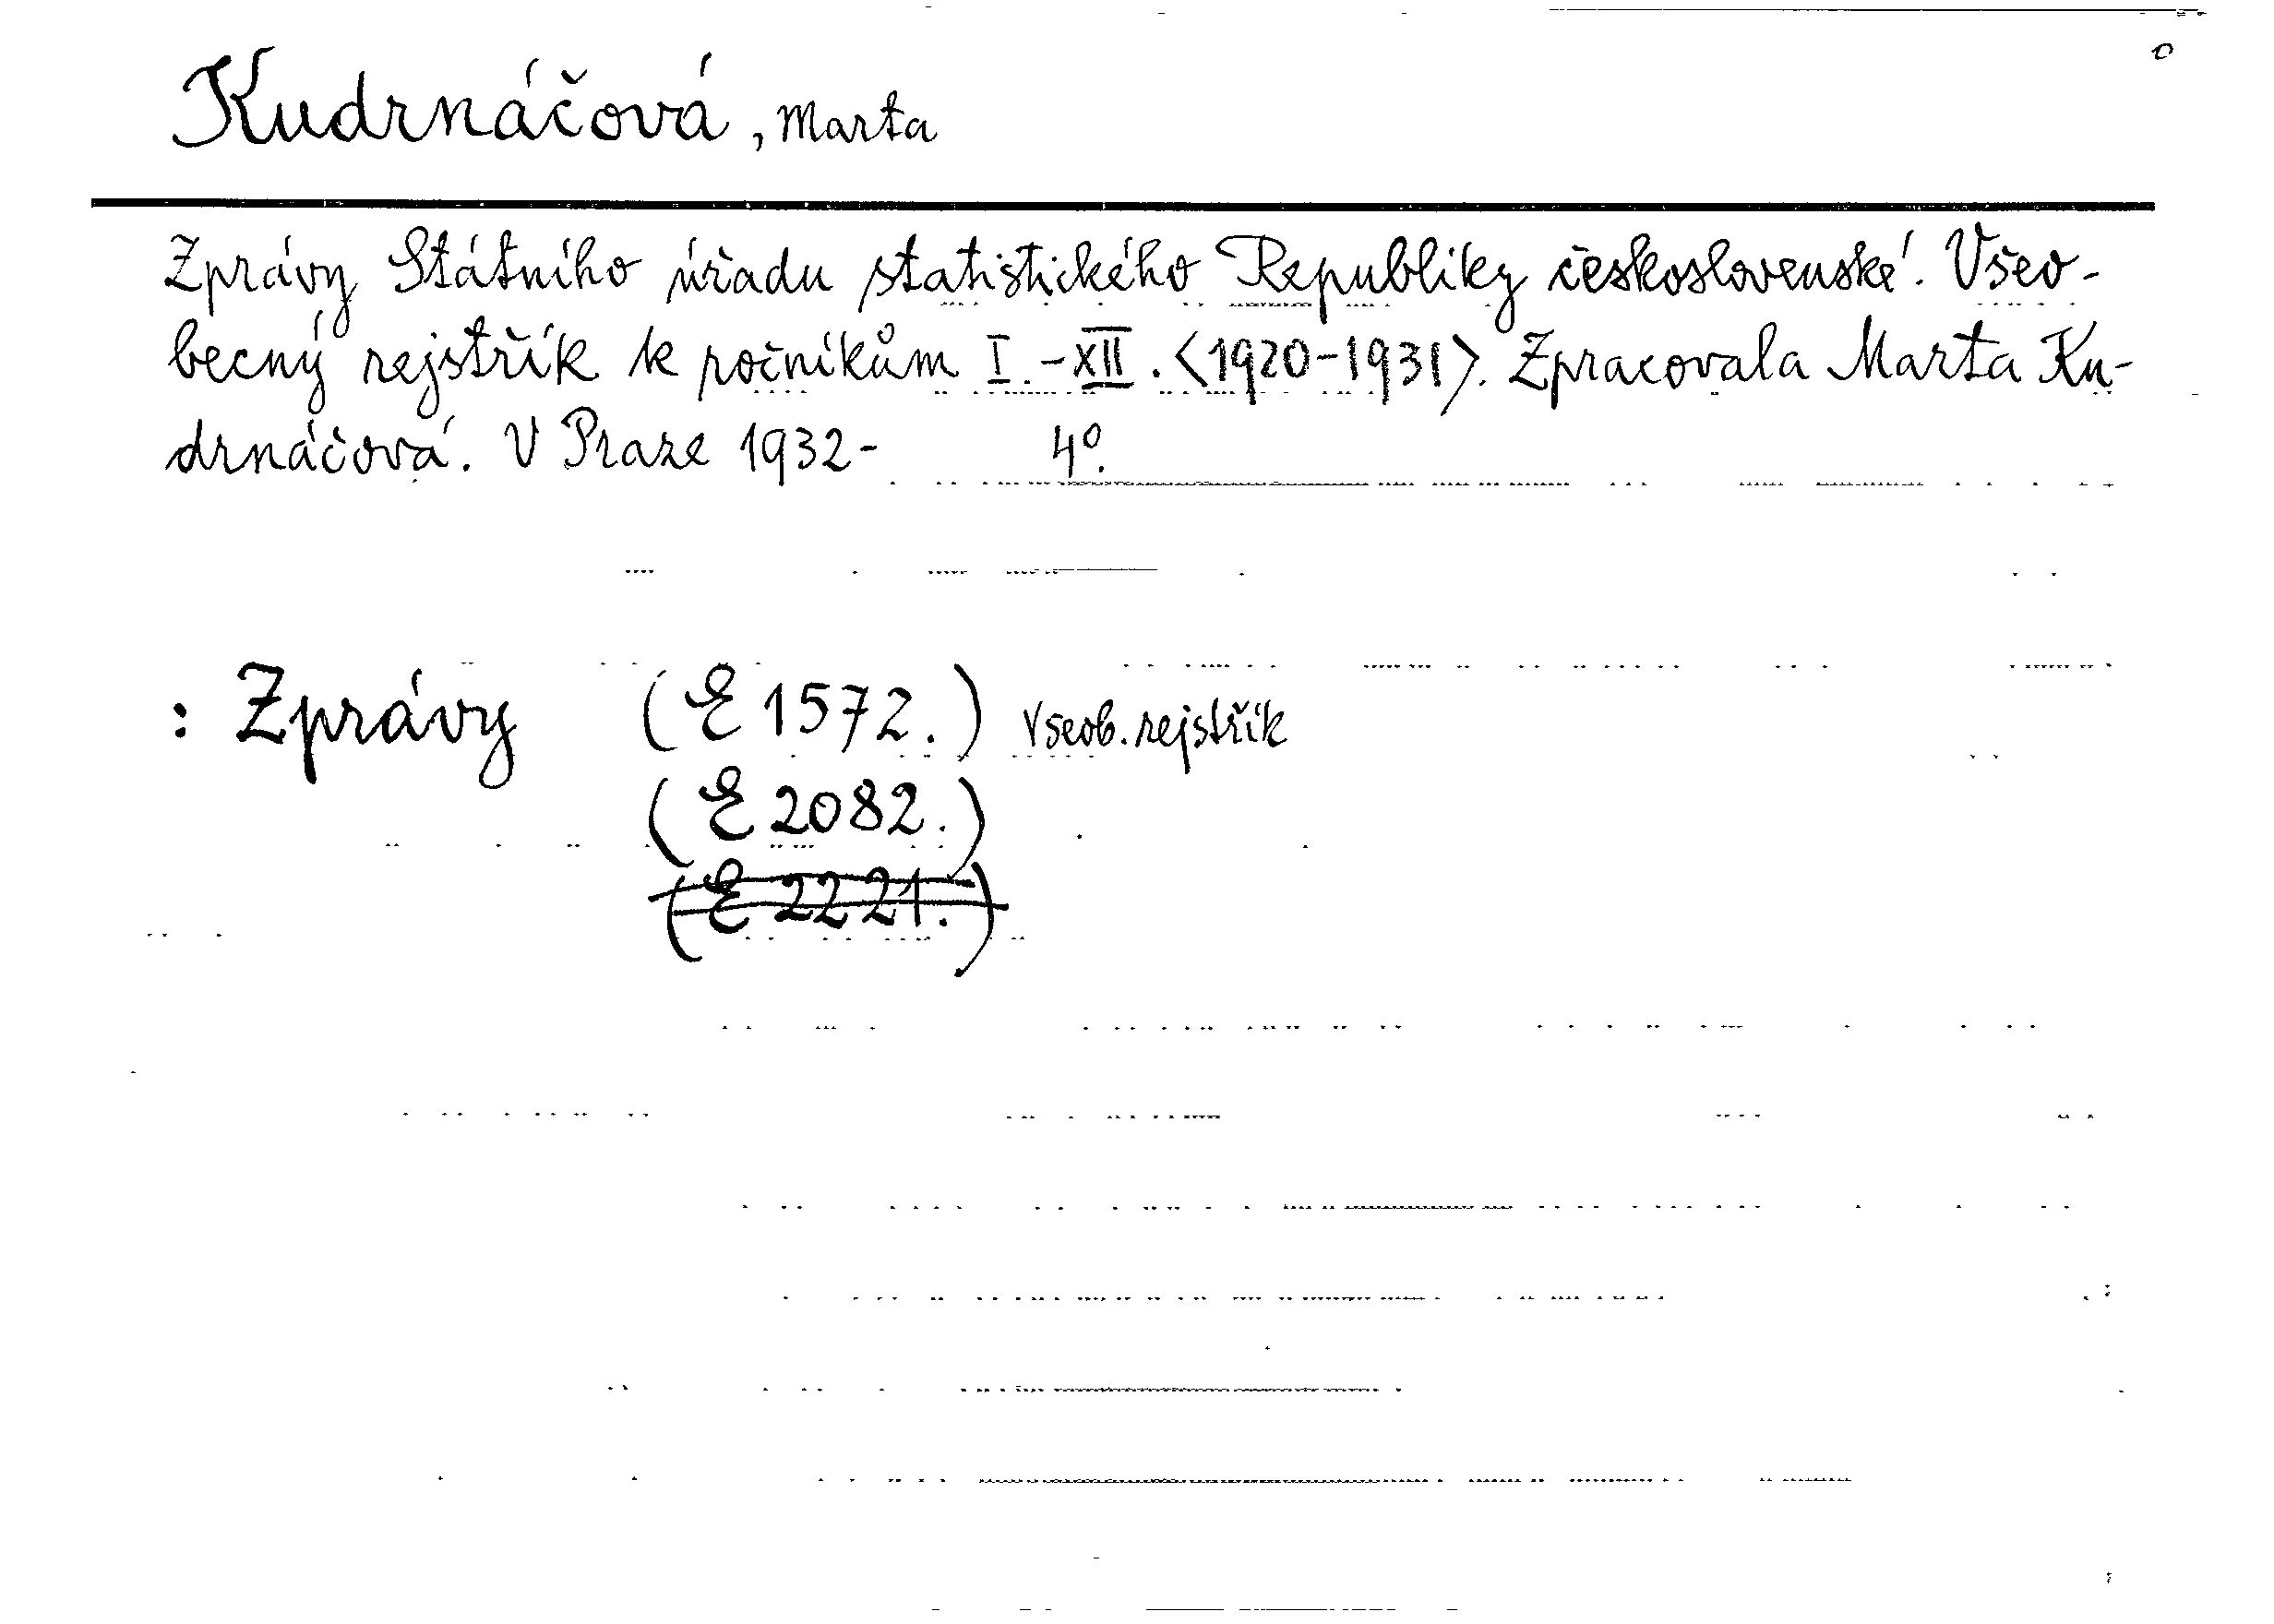 Kudrnáčová, Marta
Zprávy Státního úřadu statistického Republiky československé. Všeo-
becný rejstřík k ročníkům I.-XII. <1920-1931>. Zpracovala Marta Ku-
drnáčová. V Praze 1932- 4º.
: Zprávy (E 1572.) Všeob. rejstřík
(E 2082.)
(E 2221.)